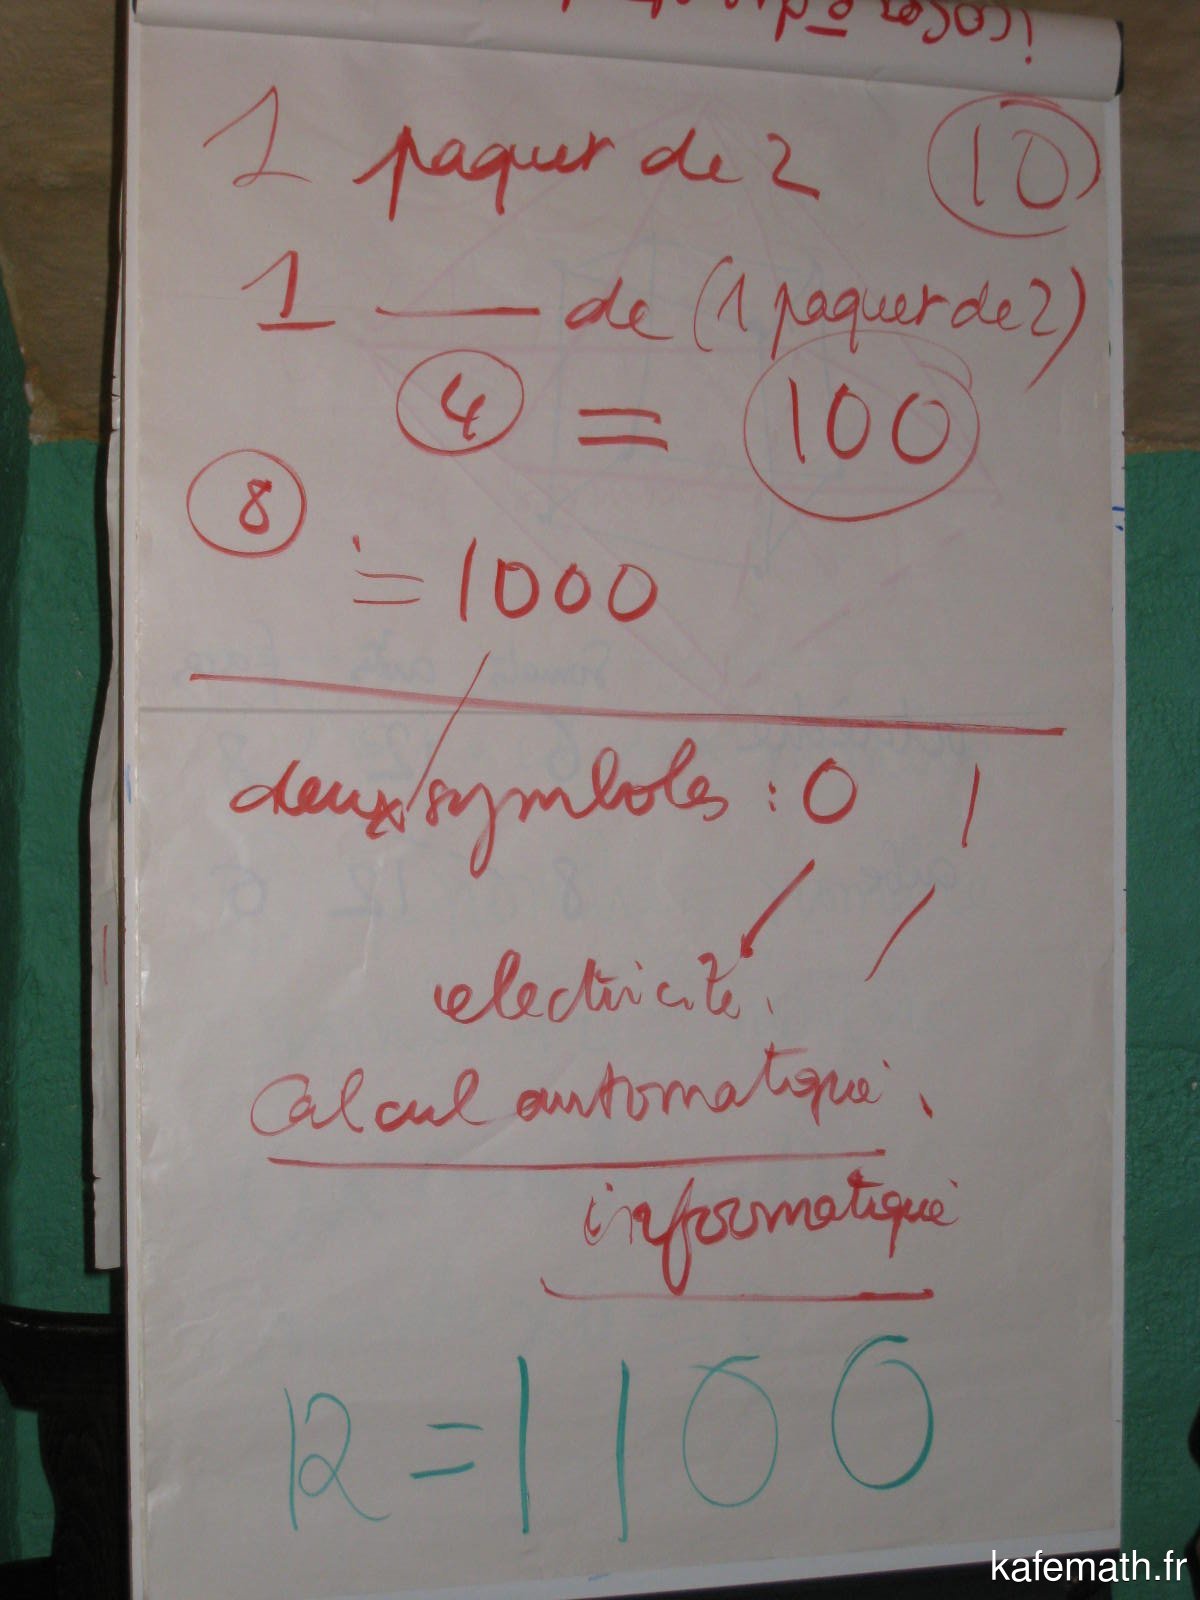 1 paquet de 2 10
1 —— de (1 paquet de 2)
4 = 100
8
= 1000
deux symboles : 0 1
electricité.
Calcul automatique.
informatique
12 = 1100
kafemath.fr